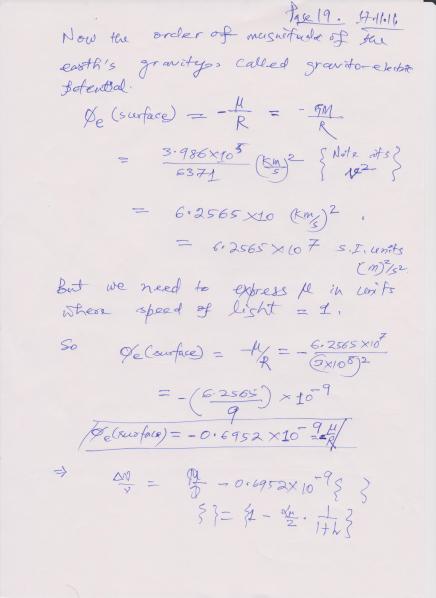 Page 19. 17.11.16
Now the order of magnitude of the
earth's gravity, called gravito-electric
potential.
φe (surface) = - μ/R = - GM/R
= 3.986×10^5/6371 (Km/s)^2 { Note its v^2 }
= 6.2565×10 (Km/s)^2.
= 6.2565×10^7 S.I. units
(m)^2/s^2
But we need to express μ in units
where speed of light = 1.
So φe(surface) = -μ/R = - 6.2565×10^7/(3×10^8)^2
= -(6.2565/9) × 10^-9
φe(surface) = -0.6952×10^-9 = -μ/R
⇒ Δν/ν = -0.6952×10^-9 { }
{ } = {1 - /2 · 1/1+h}